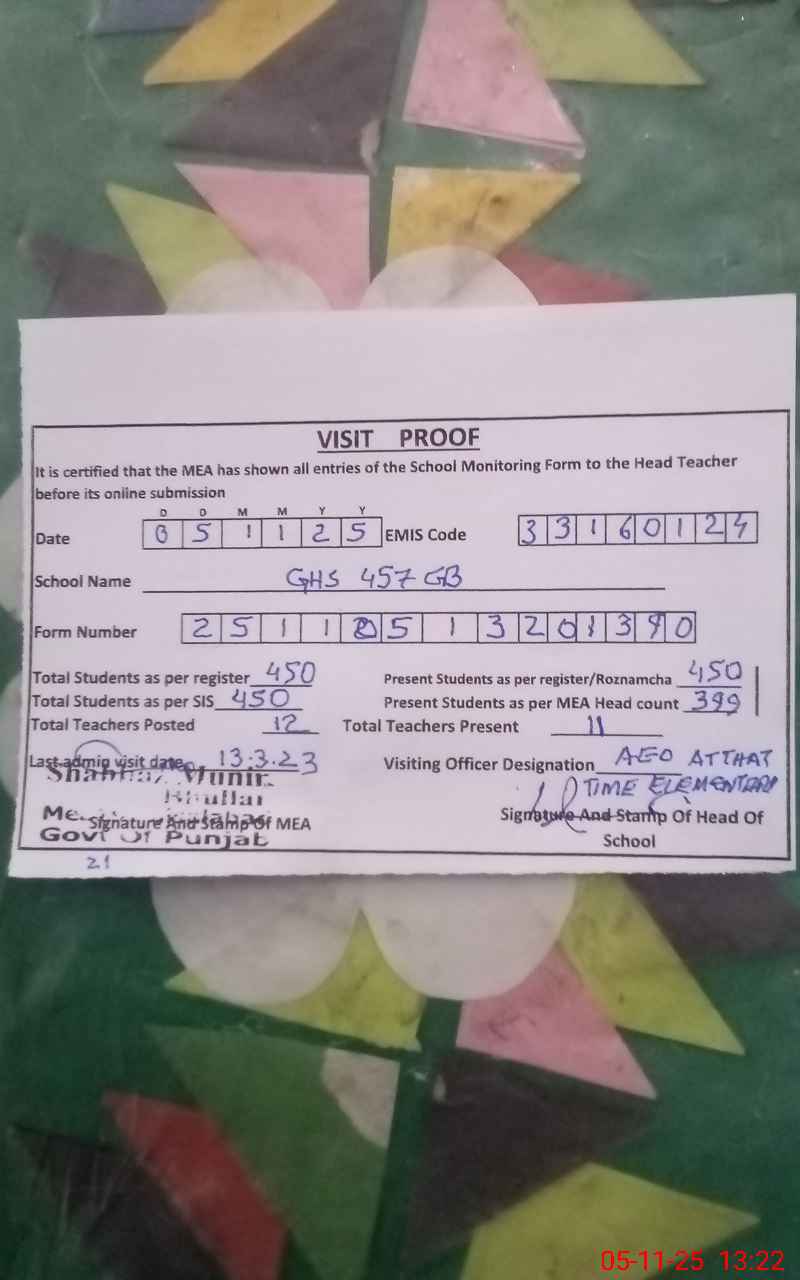 VISIT PROOF
It is certified that the MEA has shown all entries of the School Monitoring Form to the Head Teacher
before its online submission
D D M M Y Y
Date 05 11 25 EMIS Code 33160124
School Name GHS 457 GB
Form Number 25110513201390
Total Students as per register 450 Present Students as per register/Roznamcha 450
Total Students as per SIS 450 Present Students as per MEA Head count 399
Total Teachers Posted 12 Total Teachers Present 11
Last admin visit date 13.3.23 Visiting Officer Designation AEO AT THAT
TIME ELEMENTARY
Shahbaz Munir
Bhullar
Signature And Stamp Of MEA Signature And Stamp Of Head Of
Govt Of Punjab School
21
05-11-25 13:22